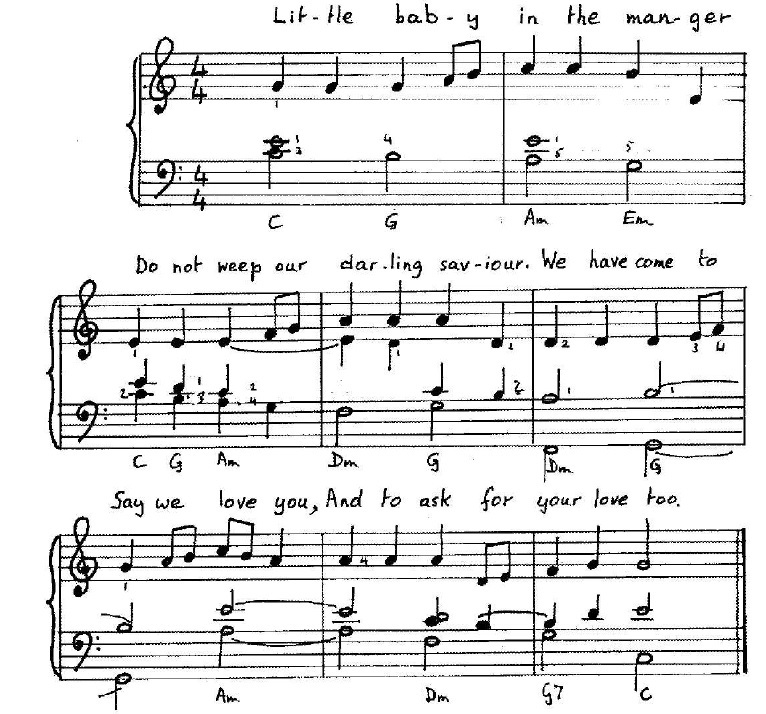 Lit-tle bab-y in the man-ger
4
4
1
1
3
4
1
5
5
4
4
C G Am Em
Do not weep our dar-ling sav-iour. We have come to
1 1 1 2 3 4
2 1 3 2 4 2 1 1
C G Am Dm G Dm G
Say we love you, And to ask for your love too.
1 4
Am Dm G7 C